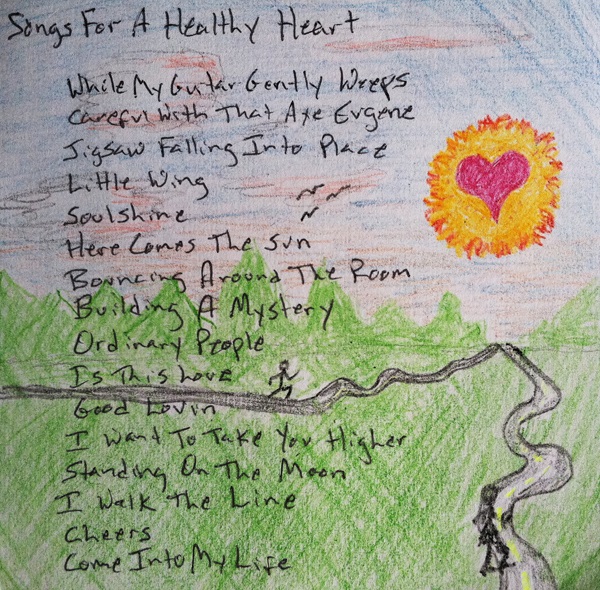 Songs For A Healthy Heart
While My Guitar Gently Weeps
Careful With That Axe Eugene
Jigsaw Falling Into Place
Little Wing
Soulshine
Here Comes The Sun
Bouncing Around The Room
Building A Mystery
Ordinary People
Is This Love
Good Lovin
I Want To Take You Higher
Standing On The Moon
I Walk The Line
Cheers
Come Into My Life